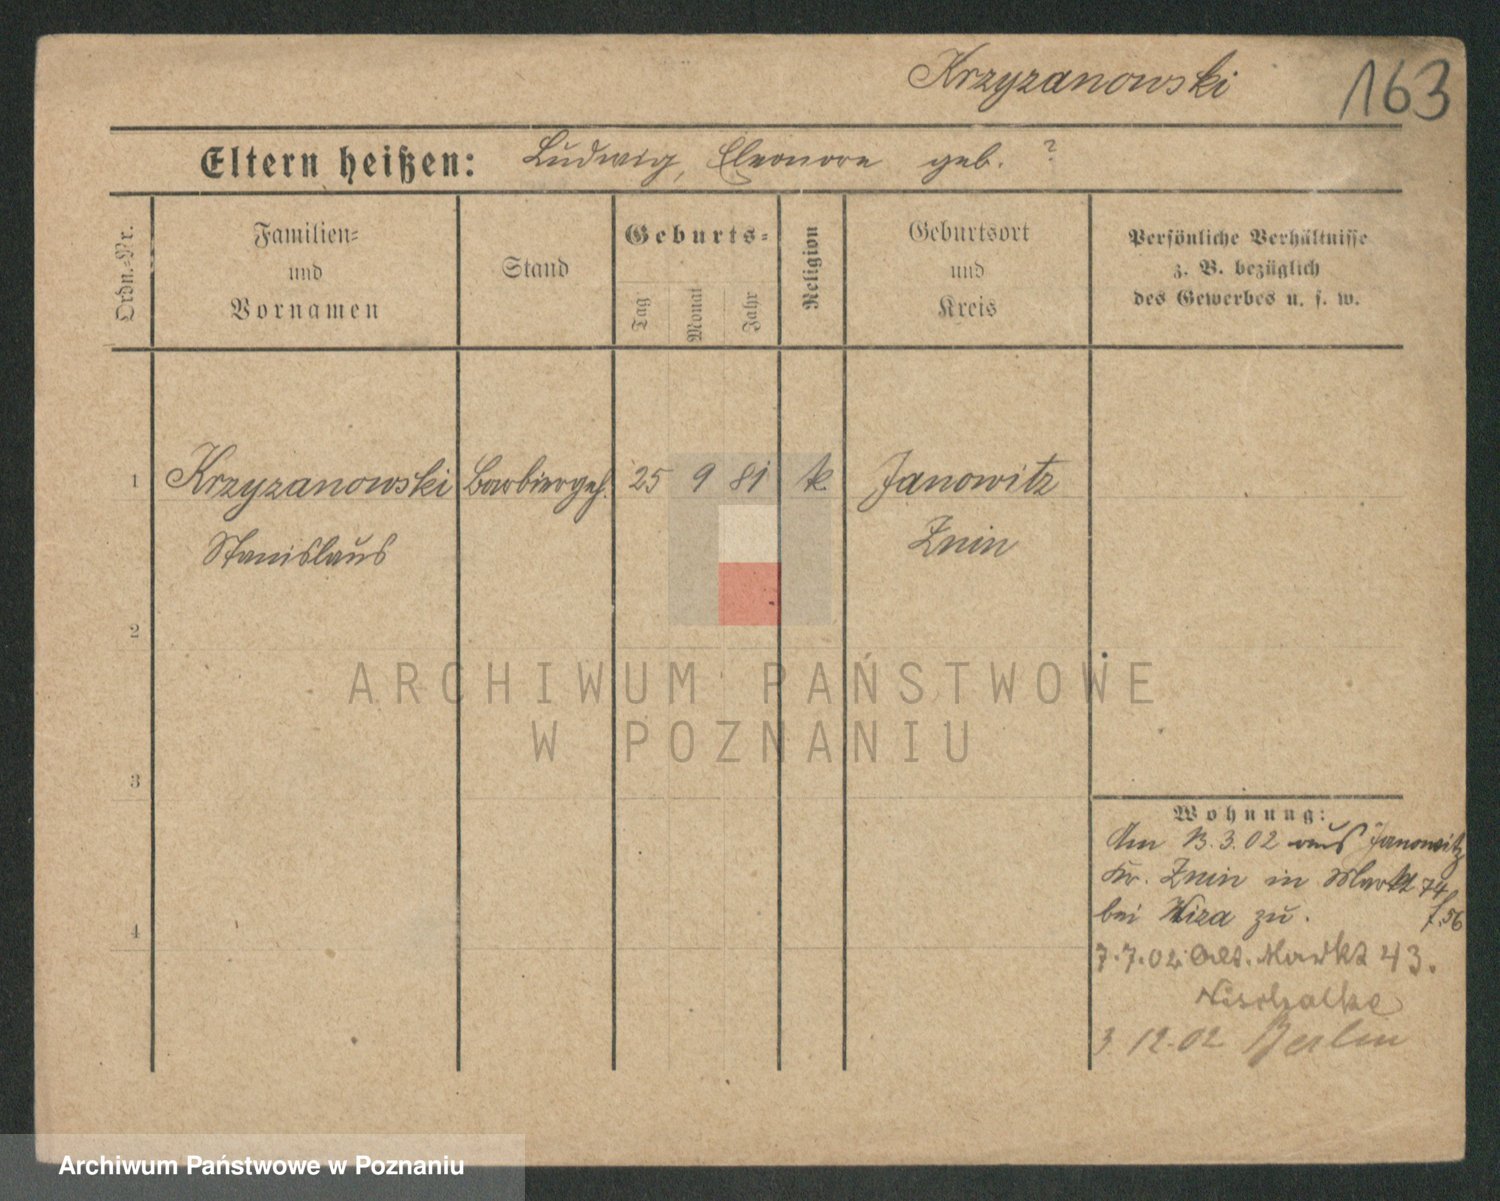 Krzyzanowski
163
Eltern heißen: Ludwig, Eleonore geb. ?
Ordn.-Nr.
Familien-
und
Vornamen
Stand
Geburts-
Tag
Monat
Jahr
Religion
Geburtsort
und
Kreis
Persönliche Verhältnisse
z. B. bezüglich
des Gewerbes u. s. w.
1 Krzyzanowski Barbiergeh. 25 9 81 k. Janowitz
Stanislaus Znin
2
ARCHIWUM PAŃSTWOWE
W POZNANIU
3
Wohnung:
Am 13.3.02 aus Janowitz
Kr. Znin in Markt 74
bei Wiza zu. f. 56
4
7.7.02 Alt. Markt 43.
3.12.02 Berlin
Archiwum Państwowe w Poznaniu